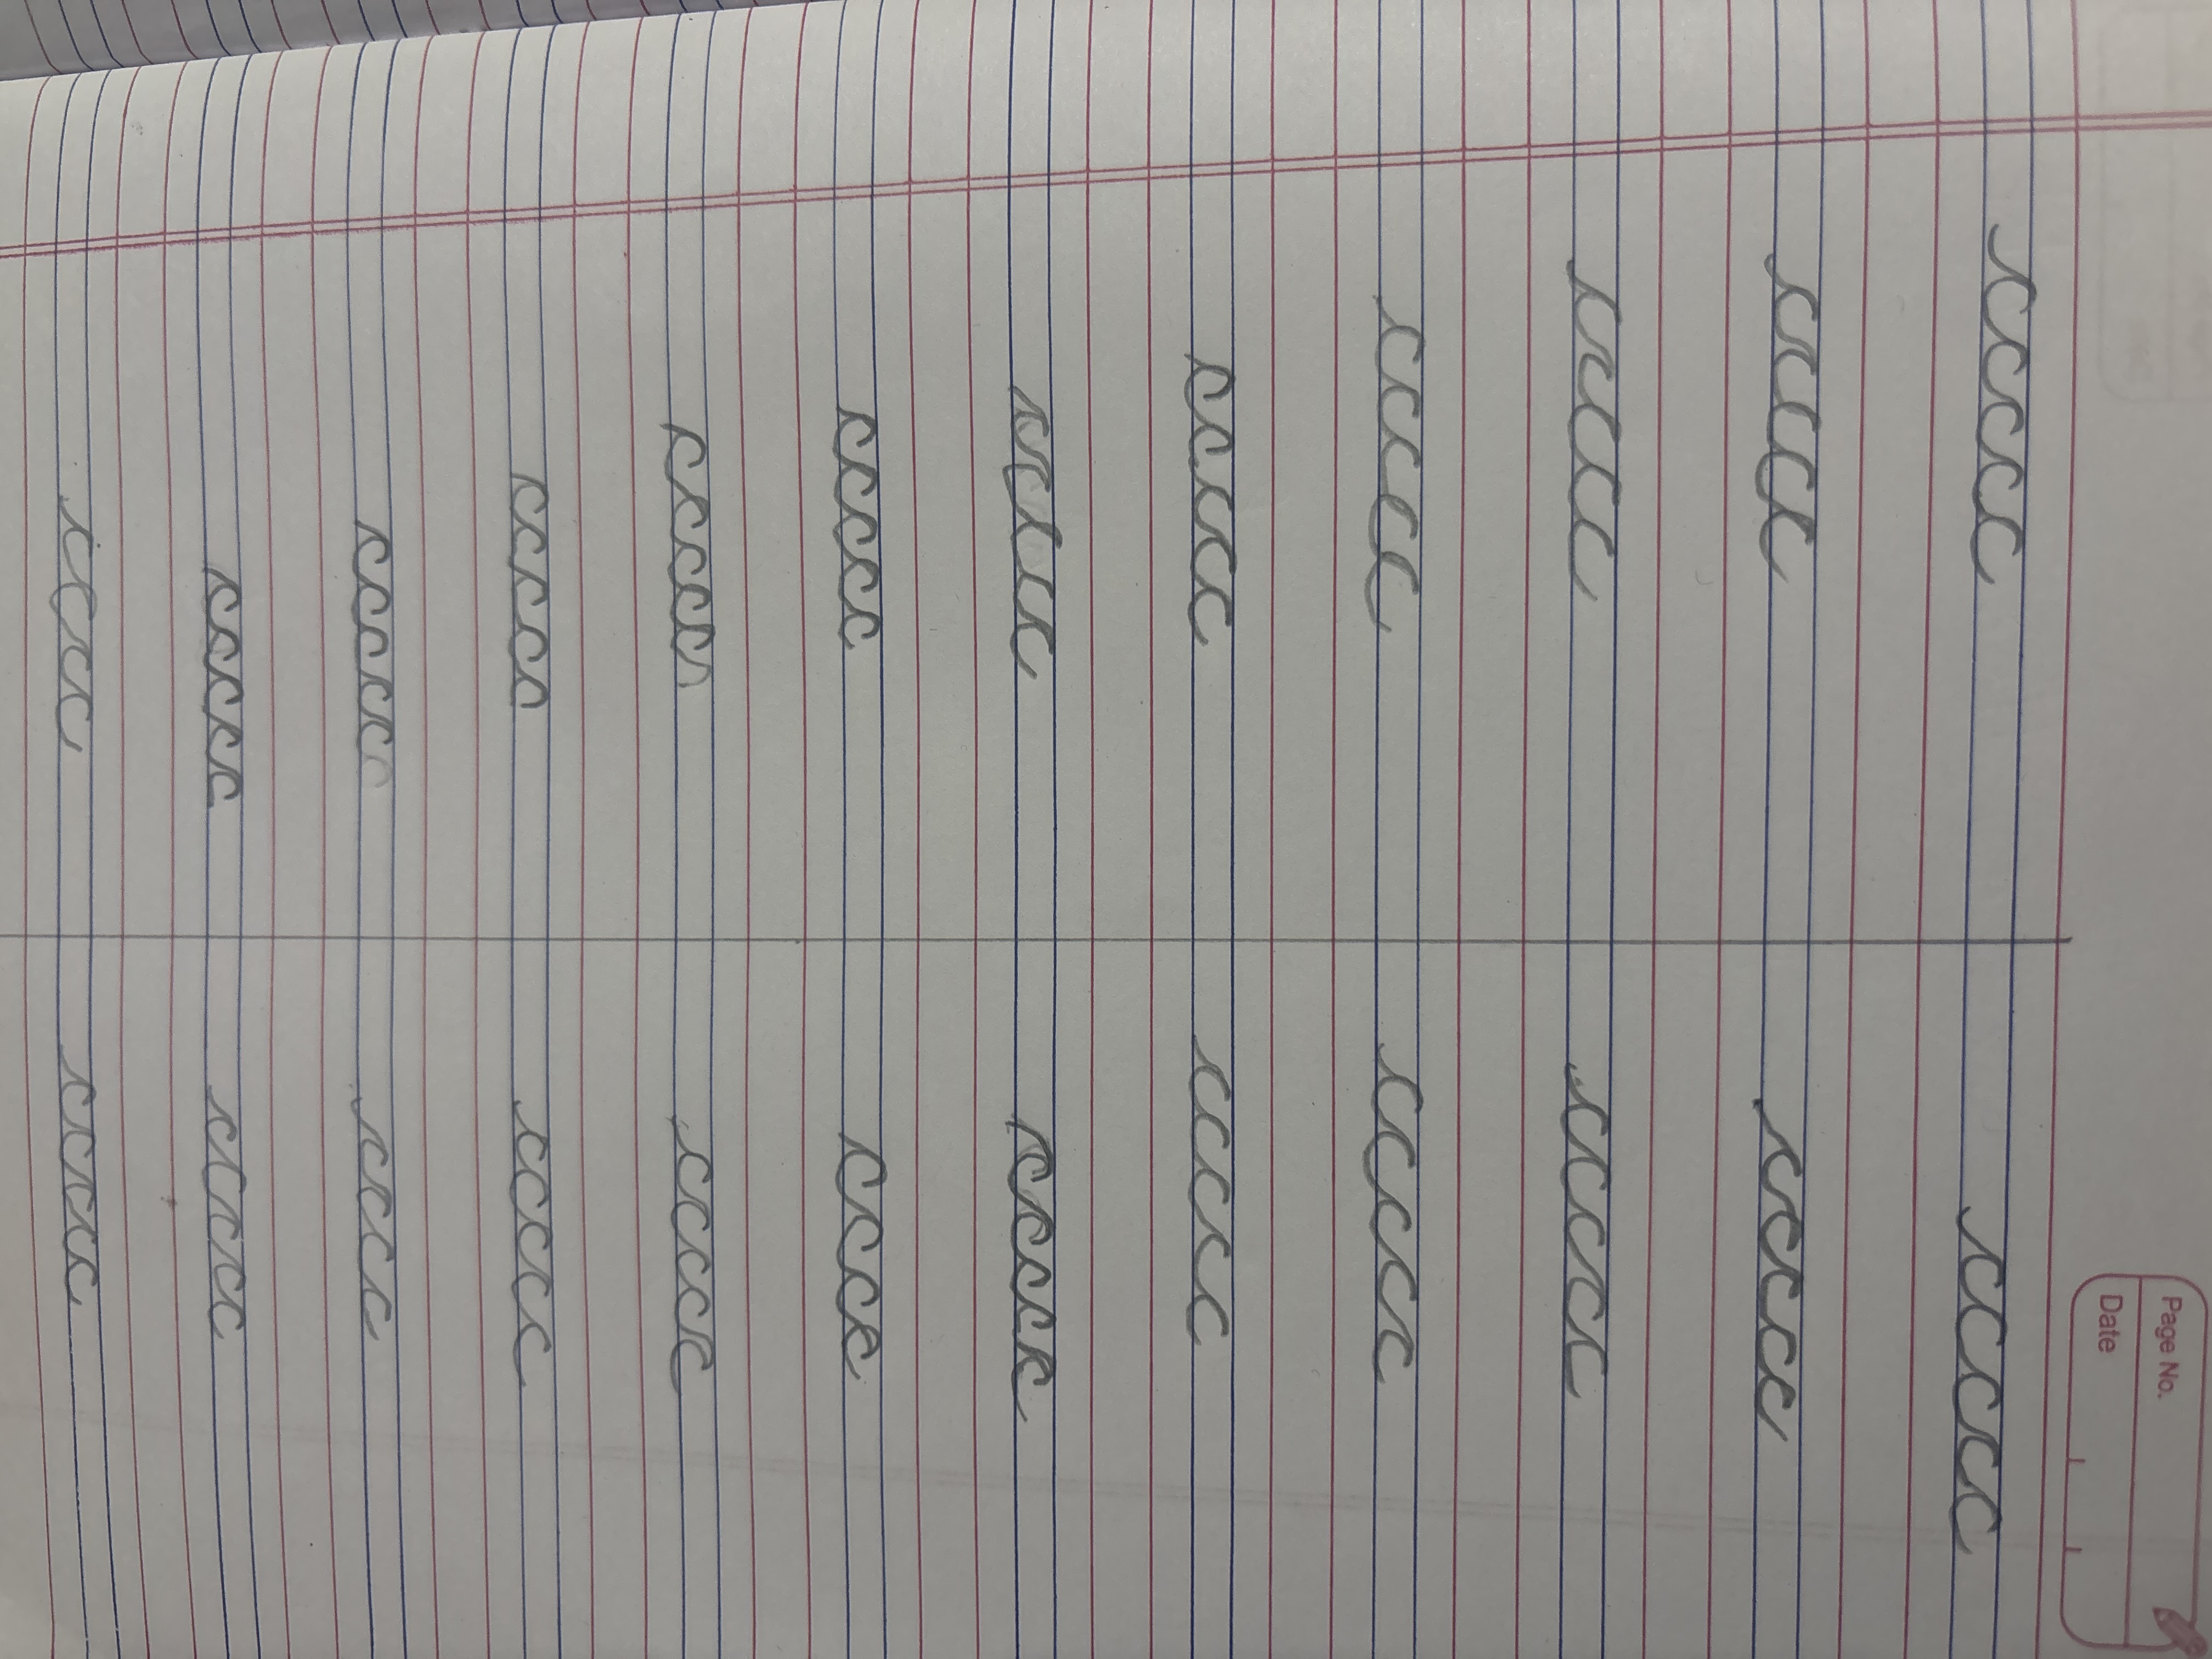 Page No.
Date
cccc cccc
cccc cccc
cccc cccc
cccc cccc
cccc cccc
cccc cccc
cccc cccc
cccc cccc
cccc cccc
cccc cccc
cccc cccc
cccc cccc